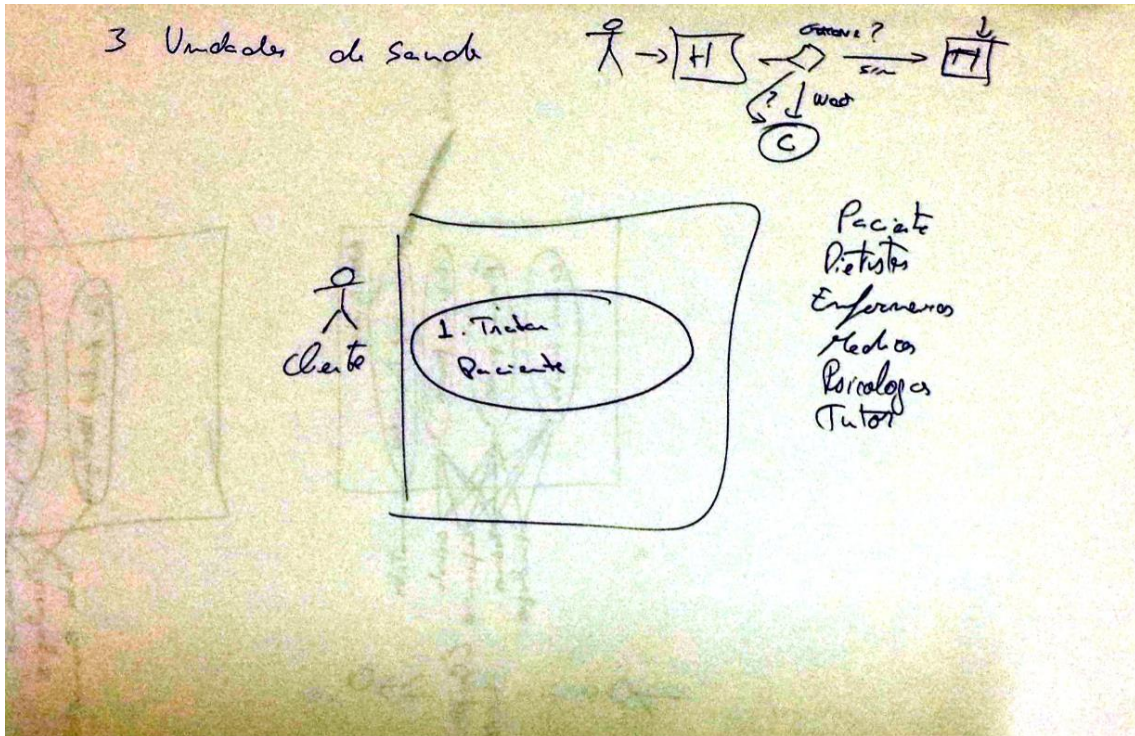 3 Unidades de Saude
H
?
sim
H
?
C
Cliente
1. Tratar
Paciente
Paciente
Dietistas
Enfermeiros
Medicos
Psicologos
Tutor